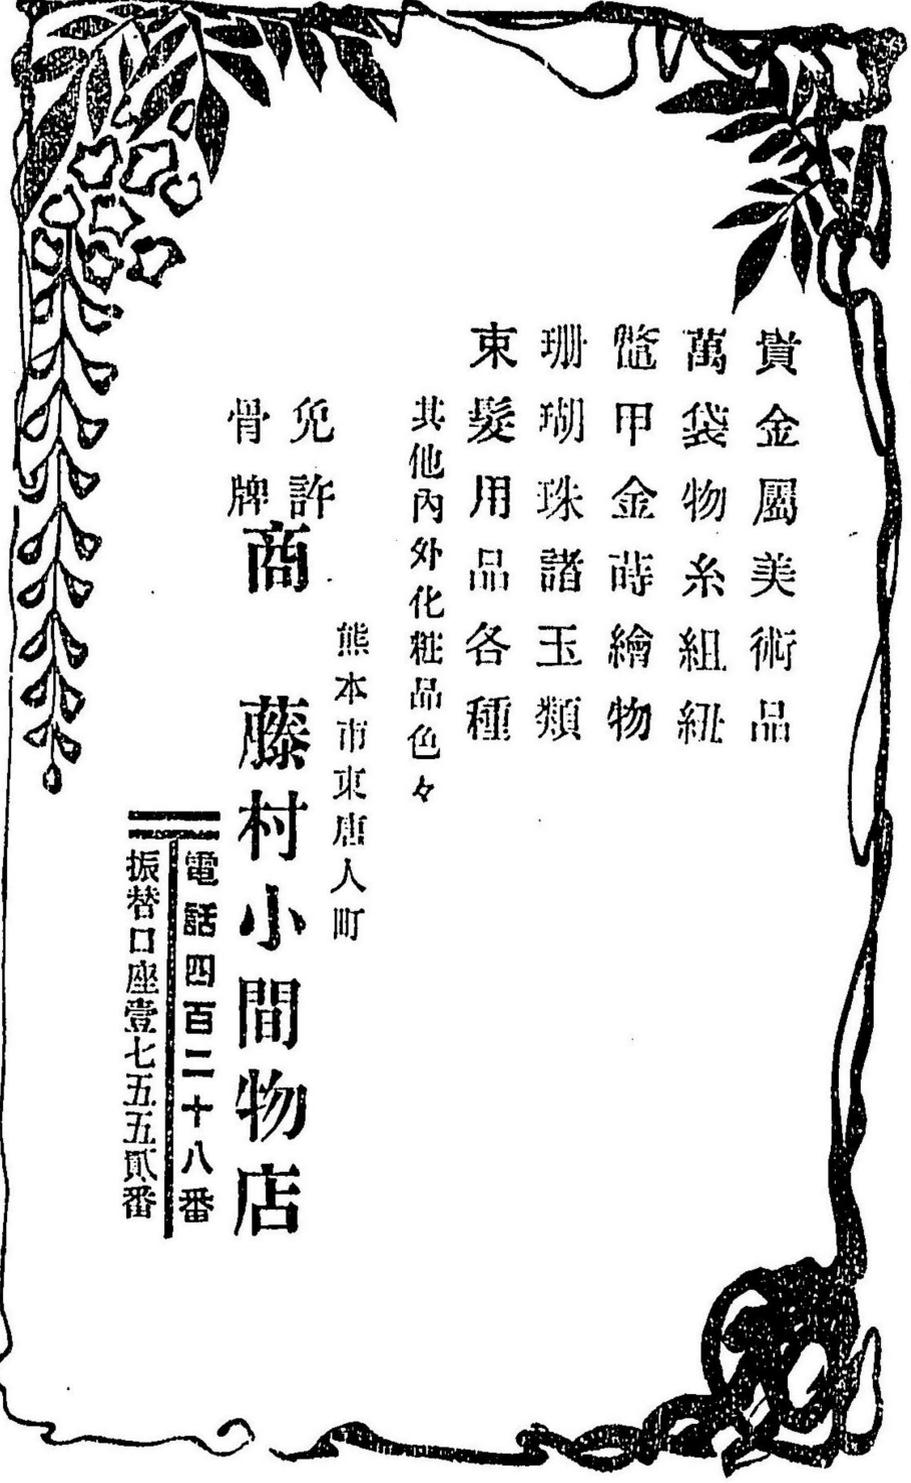 貴金屬美術品
萬袋物糸組紐
鼈甲金蒔繪物
珊瑚珠諸玉類
束髮用品各種
其他內外化粧品色々
熊本市東唐人町
免許
骨牌
商 藤村小間物店
電話四百二十八番
振替口座壹七五五貳番